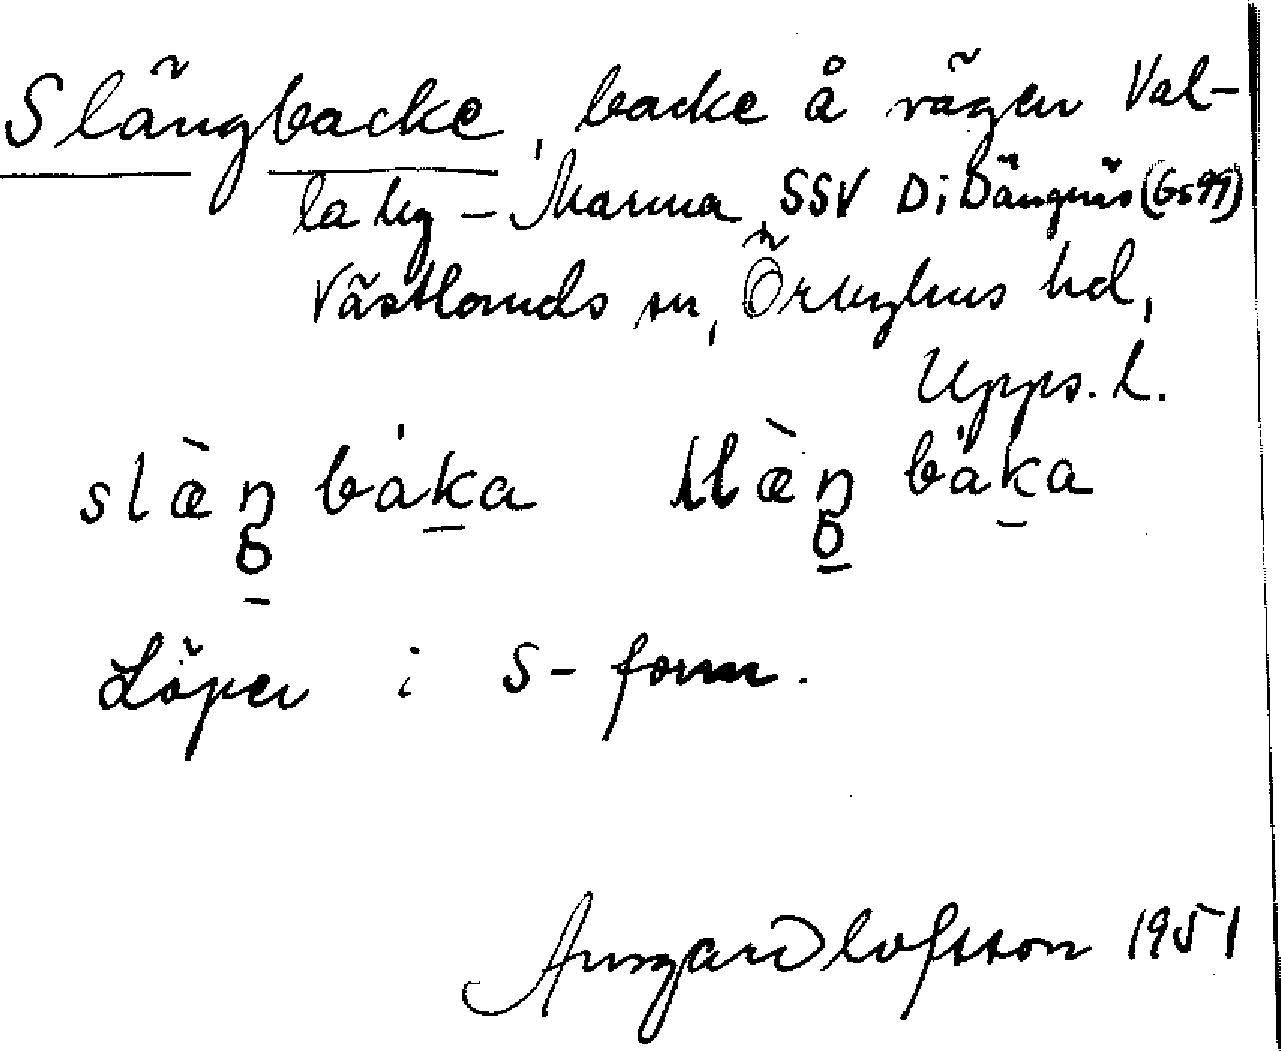 Slängbacke, backe å vägen Val-
la hg – Marma, SSV Di Dängnäs (Gs 99)
Västlands sn, Örbyhus hd,
Upps. l.
slæ̀ŋ báka slæ̀ŋ báka
Löper i S-form.
Ansgar Olofsson 1951